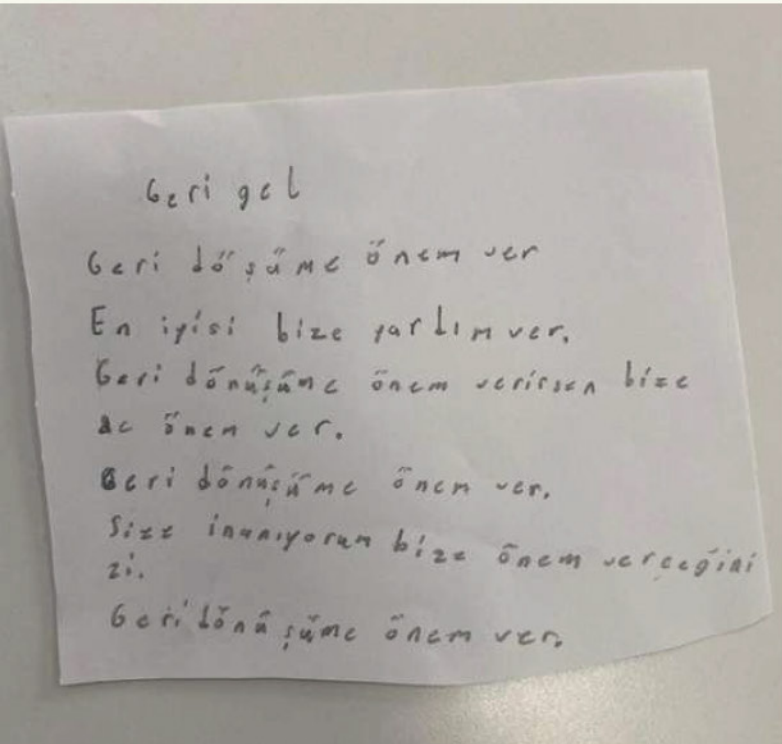 Geri gel
Geri döşüme önem ver
En iyisi bize yardım ver.
Geri dönüşüme önem verirsen bize
de önem ver.
Geri dönüşüme önem ver.
Size inanıyorum bize önem verceğini
zi.
Geri dönüşüme önem ver.